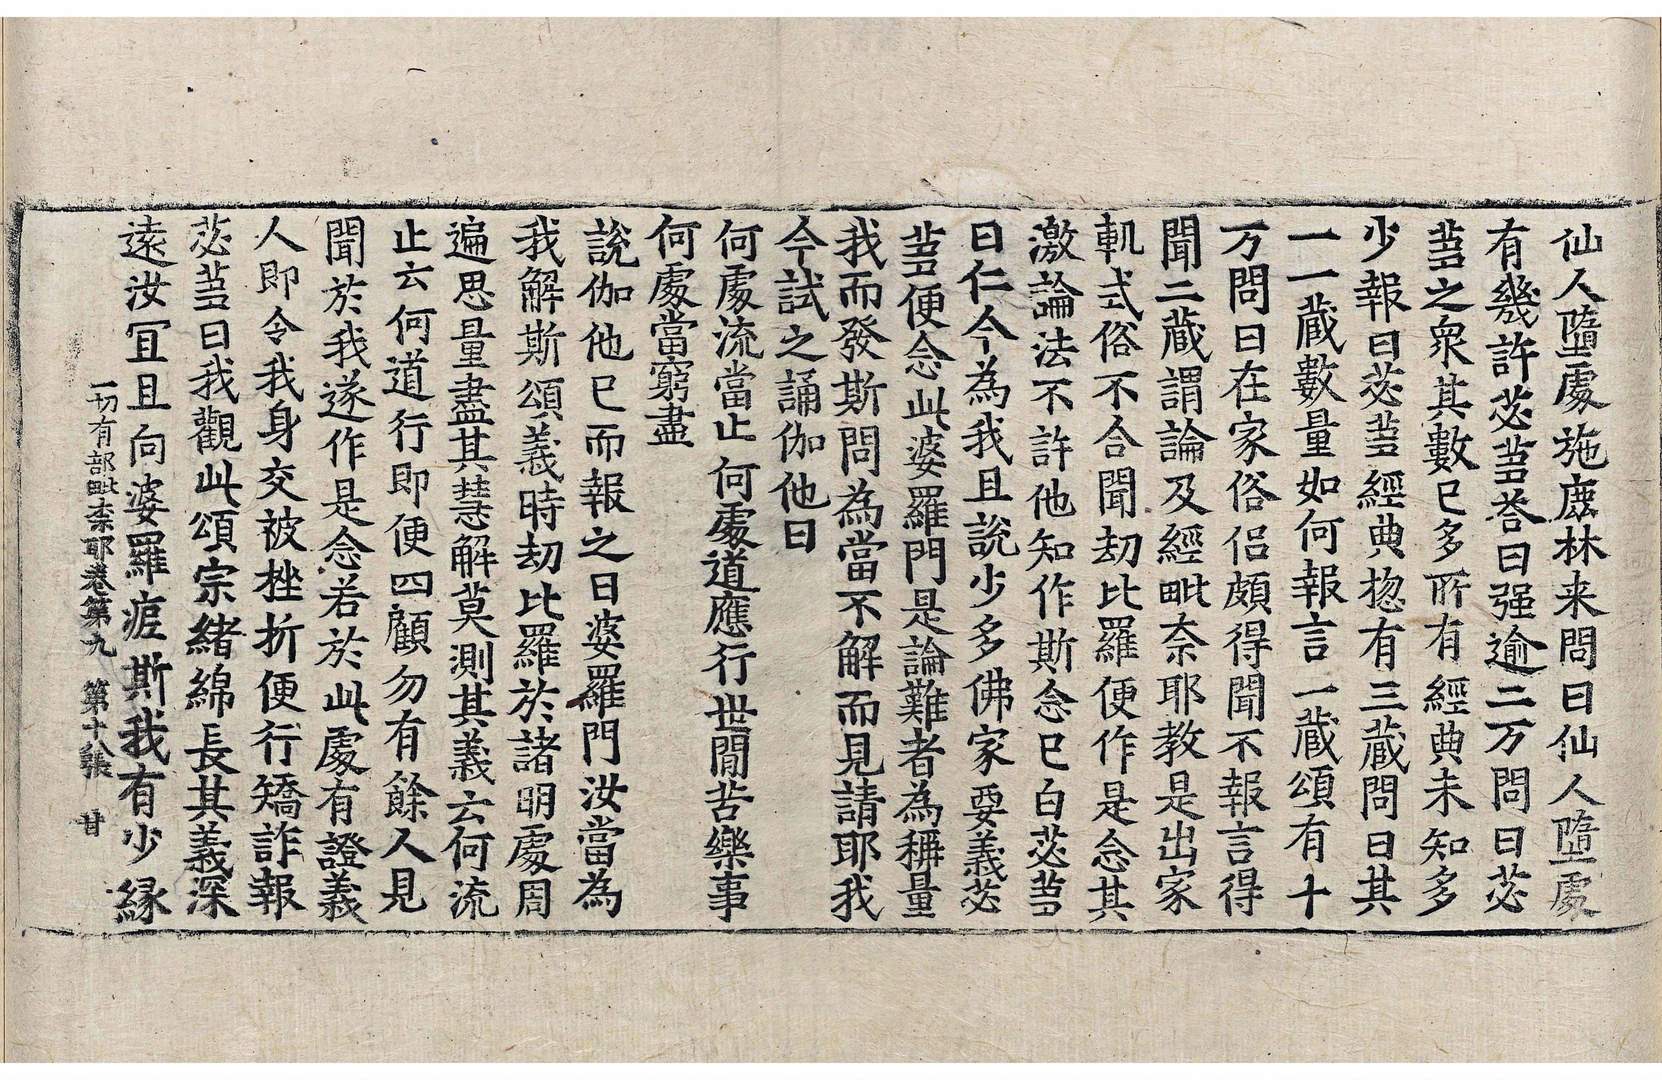 仙人墮處施鹿林来問曰仙人墮處
有幾許苾蒭荅曰强逾二万問曰苾
蒭之衆其數已多所有經典未知多
少報曰苾蒭經典揔有三藏問曰其
一一藏數量如何報言一藏頌有十
万問曰在家俗侣頗得聞不報言得
聞二藏謂論及經毗奈耶教是出家
軌式俗不合聞劫比羅便作是念其
激論法不許他知作斯念已白苾蒭
曰仁今為我且說少多佛家要義苾
蒭便念此婆羅門是論難者為稱量
我而發斯問為當不解而見請耶我
今試之誦伽他曰
何處流當止何處道應行世間苦樂事
何處當窮盡
說伽他已而報之曰婆羅門汝當為
我解斯頌義時劫比羅於諸明處周
遍思量盡其慧解莫測其義云何流
止云何道行即便四顧勿有餘人見
聞於我遂作是念若於此處有證義
人即令我身交被挫折便行矯詐報
苾蒭曰我觀此頌宗緒綿長其義深
遠汝冝且向婆羅痆斯我有少縁
一切有部毗奈耶卷第九 第十八張 甘